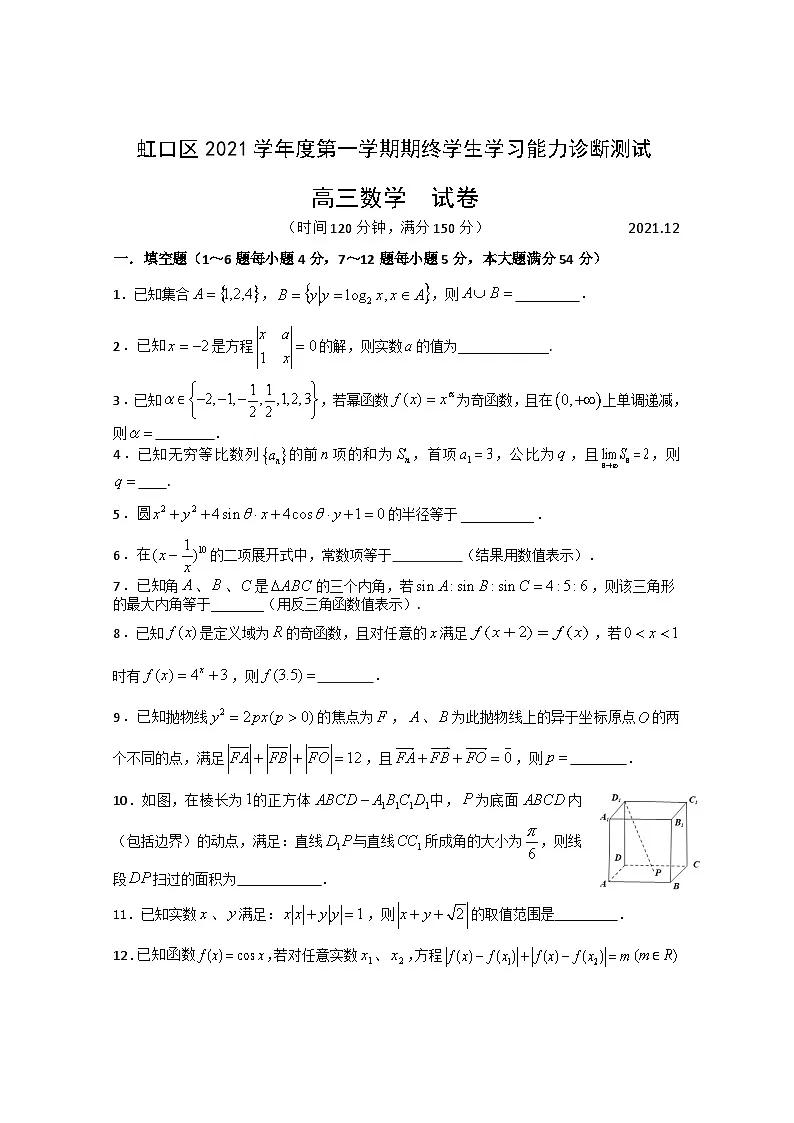 虹口区 2021 学年度第一学期期终学生学习能力诊断测试
高三数学 试卷
（时间 120 分钟，满分 150 分） 2021.12
一．填空题（1～6 题每小题 4 分，7～12 题每小题 5 分，本大题满分 54 分）
1．已知集合 A = {1,2,4}，B = {y|y = log₂ x, x ∈ A}，则 A∪B = ________．
2．已知 x = −2 是方程 |x a; 1 x| = 0 的解，则实数 a 的值为____________．
3．已知 α ∈ {−2, −1, −1/2, 1/2, 1, 2, 3}，若幂函数 f(x) = x^α 为奇函数，且在 (0, +∞) 上单调递减，
则 α = ________．
4．已知无穷等比数列 {aₙ} 的前 n 项的和为 Sₙ，首项 a₁ = 3，公比为 q，且 lim(n→∞) Sₙ = 2，则
q = ____．
5．圆 x² + y² + 4sin θ · x + 4cos θ · y + 1 = 0 的半径等于 __________．
6．在 (x − 1/x)¹⁰ 的二项展开式中，常数项等于_________（结果用数值表示）．
7．已知角 A、B、C 是 ΔABC 的三个内角，若 sin A : sin B : sin C = 4 : 5 : 6，则该三角形
的最大内角等于_______（用反三角函数值表示）．
8．已知 f(x) 是定义域为 R 的奇函数，且对任意的 x 满足 f(x + 2) = f(x)，若 0 < x < 1
时有 f(x) = 4ˣ + 3，则 f(3.5) = ________．
9．已知抛物线 y² = 2px(p > 0) 的焦点为 F，A、B 为此抛物线上的异于坐标原点 O 的两
个不同的点，满足 |FA| + |FB| + |FO| = 12，且 FA + FB + FO = 0，则 p = ________．
10．如图，在棱长为 1 的正方体 ABCD − A₁B₁C₁D₁ 中，P 为底面 ABCD 内
（包括边界）的动点，满足：直线 D₁P 与直线 CC₁ 所成角的大小为 π/6，则线
段 DP 扫过的面积为___________．
D₁
C₁
A₁
B₁
D
C
P
A
B
11．已知实数 x、y 满足：x|x| + y|y| = 1，则 |x + y + √2| 的取值范围是________．
12．已知函数 f(x) = cos x，若对任意实数 x₁、x₂，方程 |f(x) − f(x₁)| + |f(x) − f(x₂)| = m (m ∈ R)